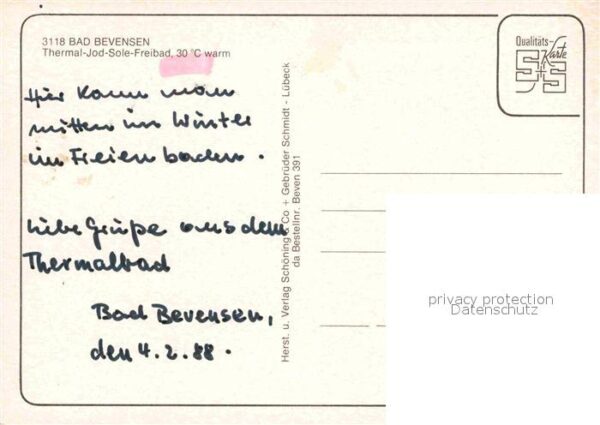 3118 BAD BEVENSEN
Thermal-Jod-Sole-Freibad, 30 °C warm
Hier kann man
mitten im Winter
im Freien baden.
Liebe Grüße aus dem
Thermalbad
Bad Bevensen,
den 4.2.88.
Herst. u. Verlag Schöning & Co + Gebrüder Schmidt - Lübeck
da Bestellnr. Beven 391
Qualitäts-
Karte
S+S
privacy protection
Datenschutz